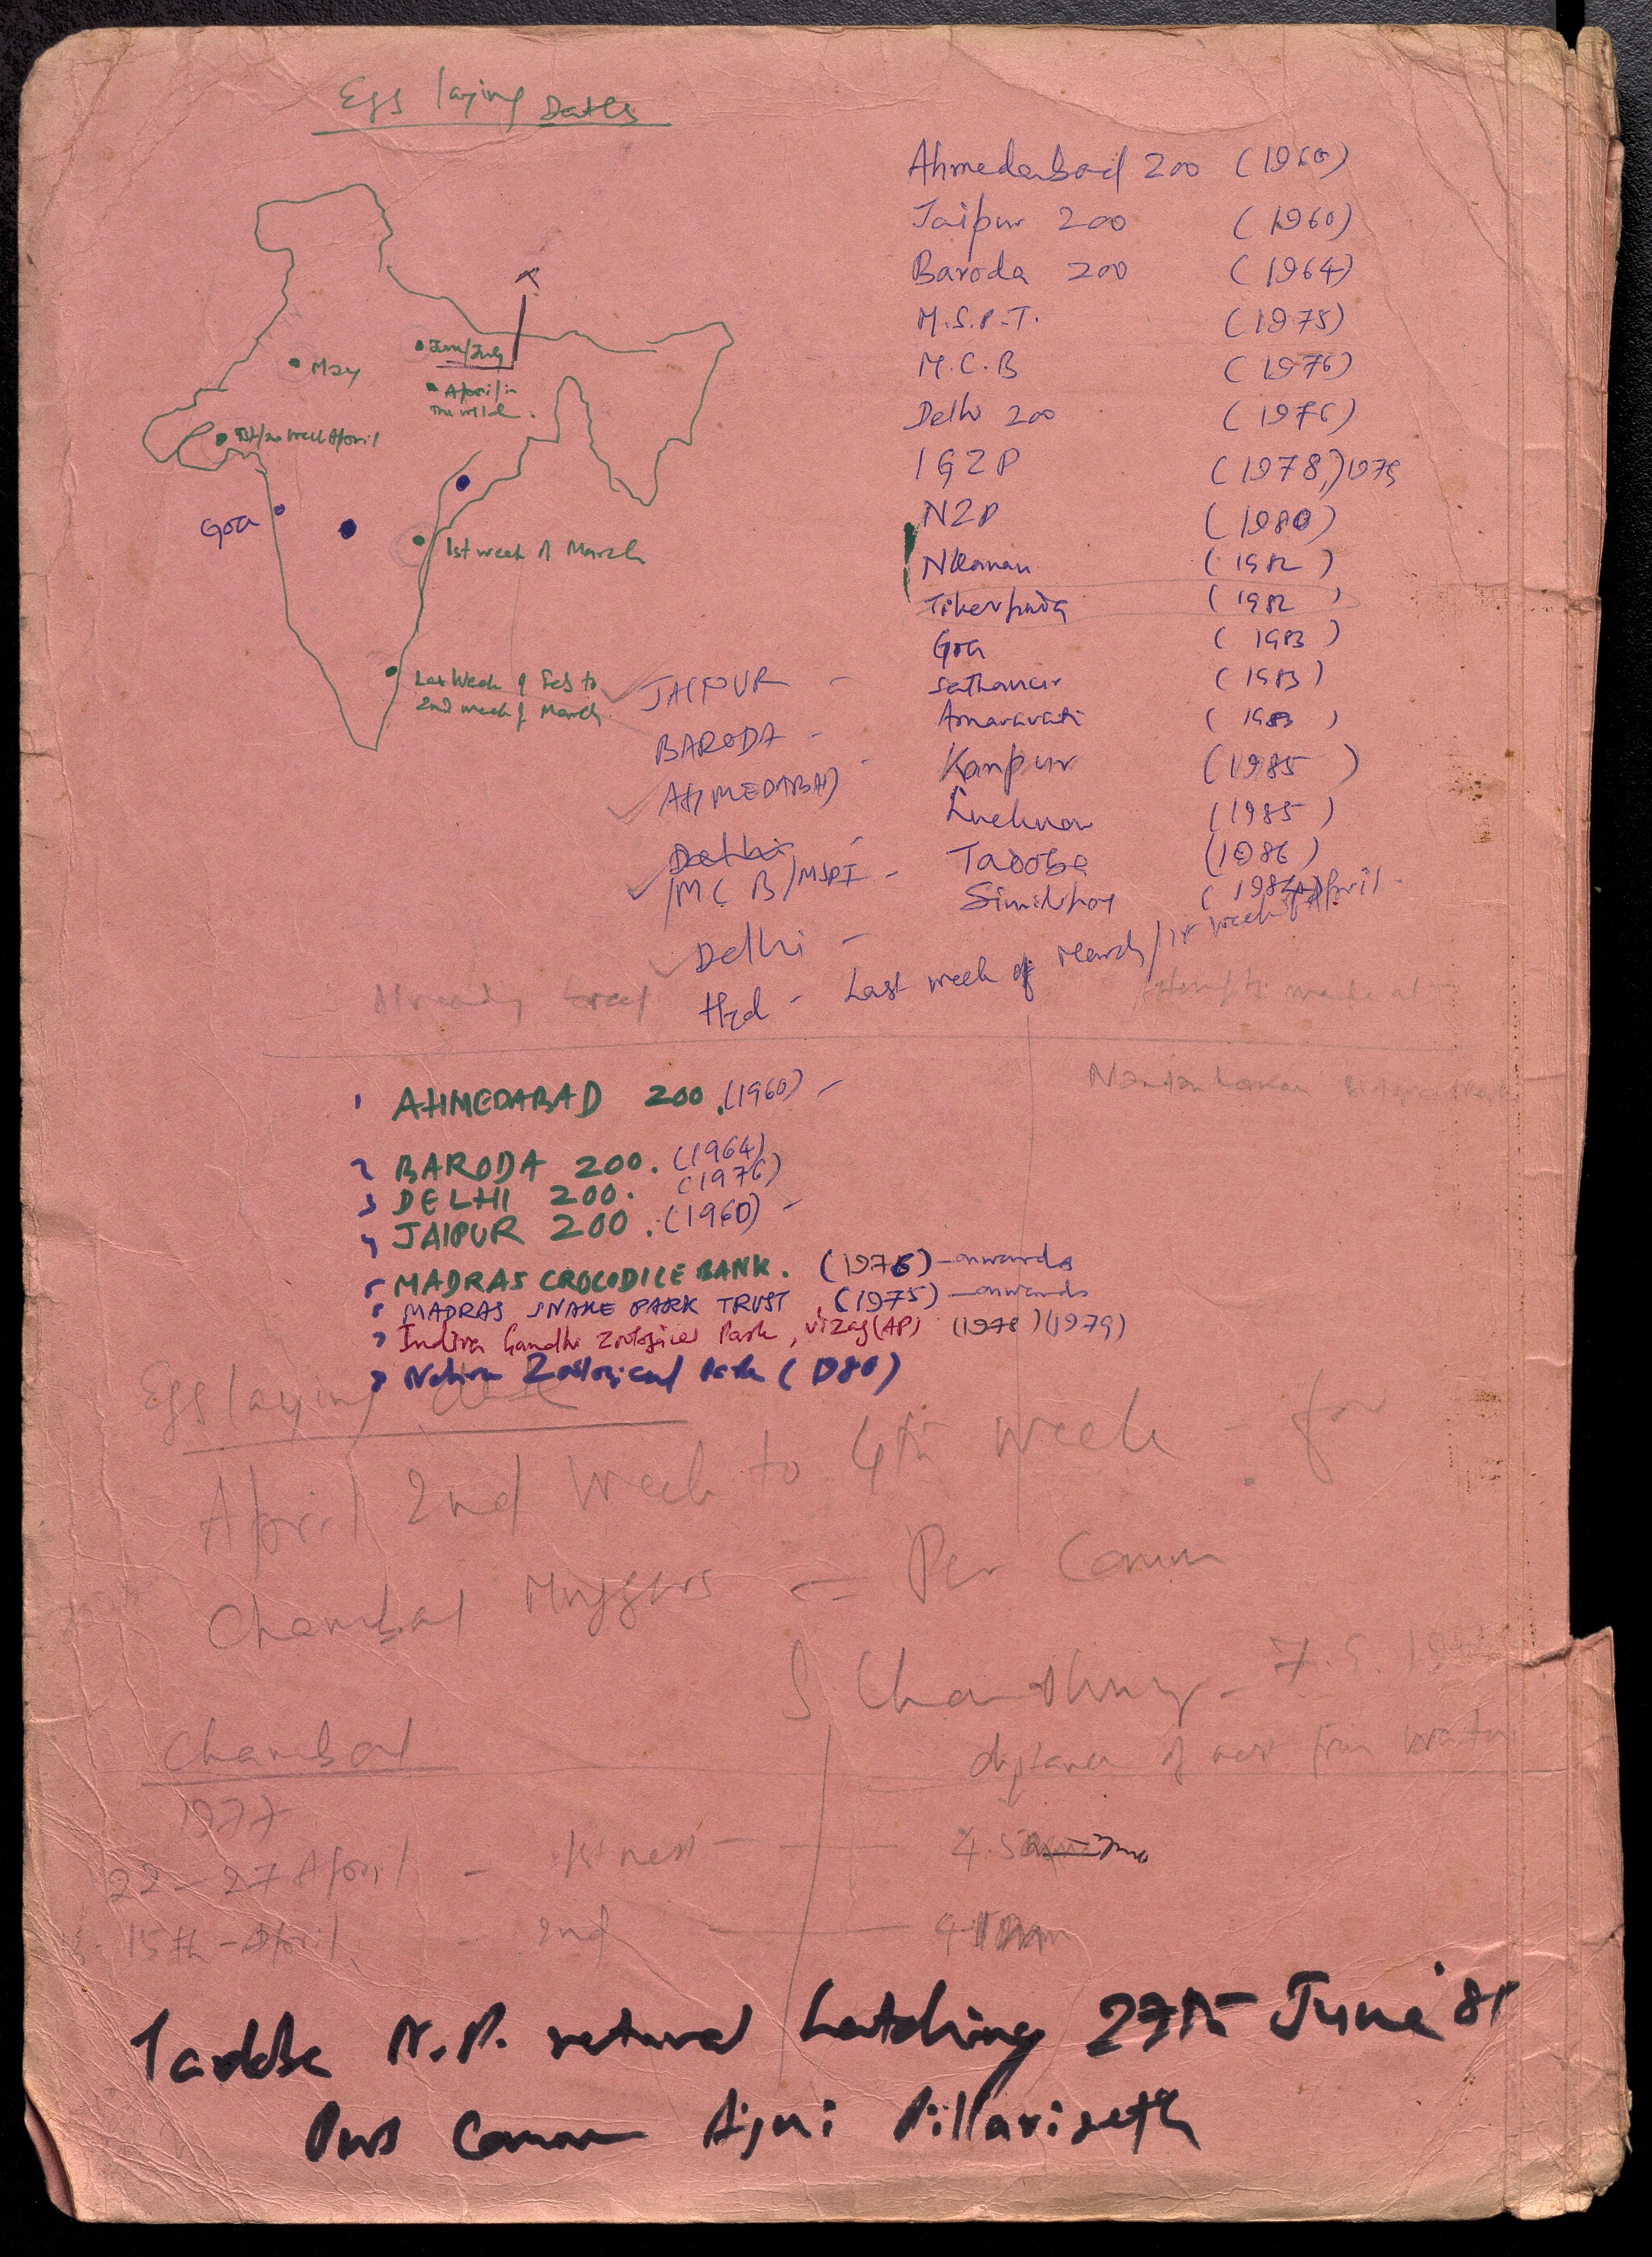 Egg laying Dates
Ahmedabad 200 (1960)
Jaipur 200 (1960)
Baroda 200 (1964)
M.S.P.T. (1975)
M.C.B (1976)
Delhi 200 (1976)
IGZP (1978,) 1979
NZP (1980)
Nkanan (1982)
Tikerpada (1982)
Goa (1983)
Sathanur (1983)
Amaravati (1983)
Kanpur (1985)
Lucknow (1985)
Tadoba (1986)
Similipal
June/July
May
April in
the wild.
1st/2nd week April
Goa
1st week of March
Last week of Feb to
2nd week of March.
JAIPUR -
BARODA -
AHMEDABAD -
Delhi -
/MCB/MSPT -
Delhi -
Hyd - Last week of March/1st week of April
Already bred
Attempts made at -
1 AHMEDABAD 200. (1960) -
2 BARODA 200. (1964)
3 DELHI 200. (1976)
4 JAIPUR 200. (1960) -
5 MADRAS CROCODILE BANK. (1976) - onwards
6 MADRAS SNAKE PARK TRUST, (1975) - onwards
7 Indira Gandhi Zoological Park, Vizag (AP) (1978) (1979)
8 Nehru Zoological Park (1980)
Nandankanan Biological Park
Egg laying date
April 2nd week to 4th week - for
Chambal Muggers = Per Comm
S Choudhury - 7.9.
Chambal
distance of nest from water
1977
22-27 April - 1st nest - 4.5
15th - April - 2nd
Tadoba N.P. natural hatching 27th June '81
Pers Comm Ajni Pillarisett